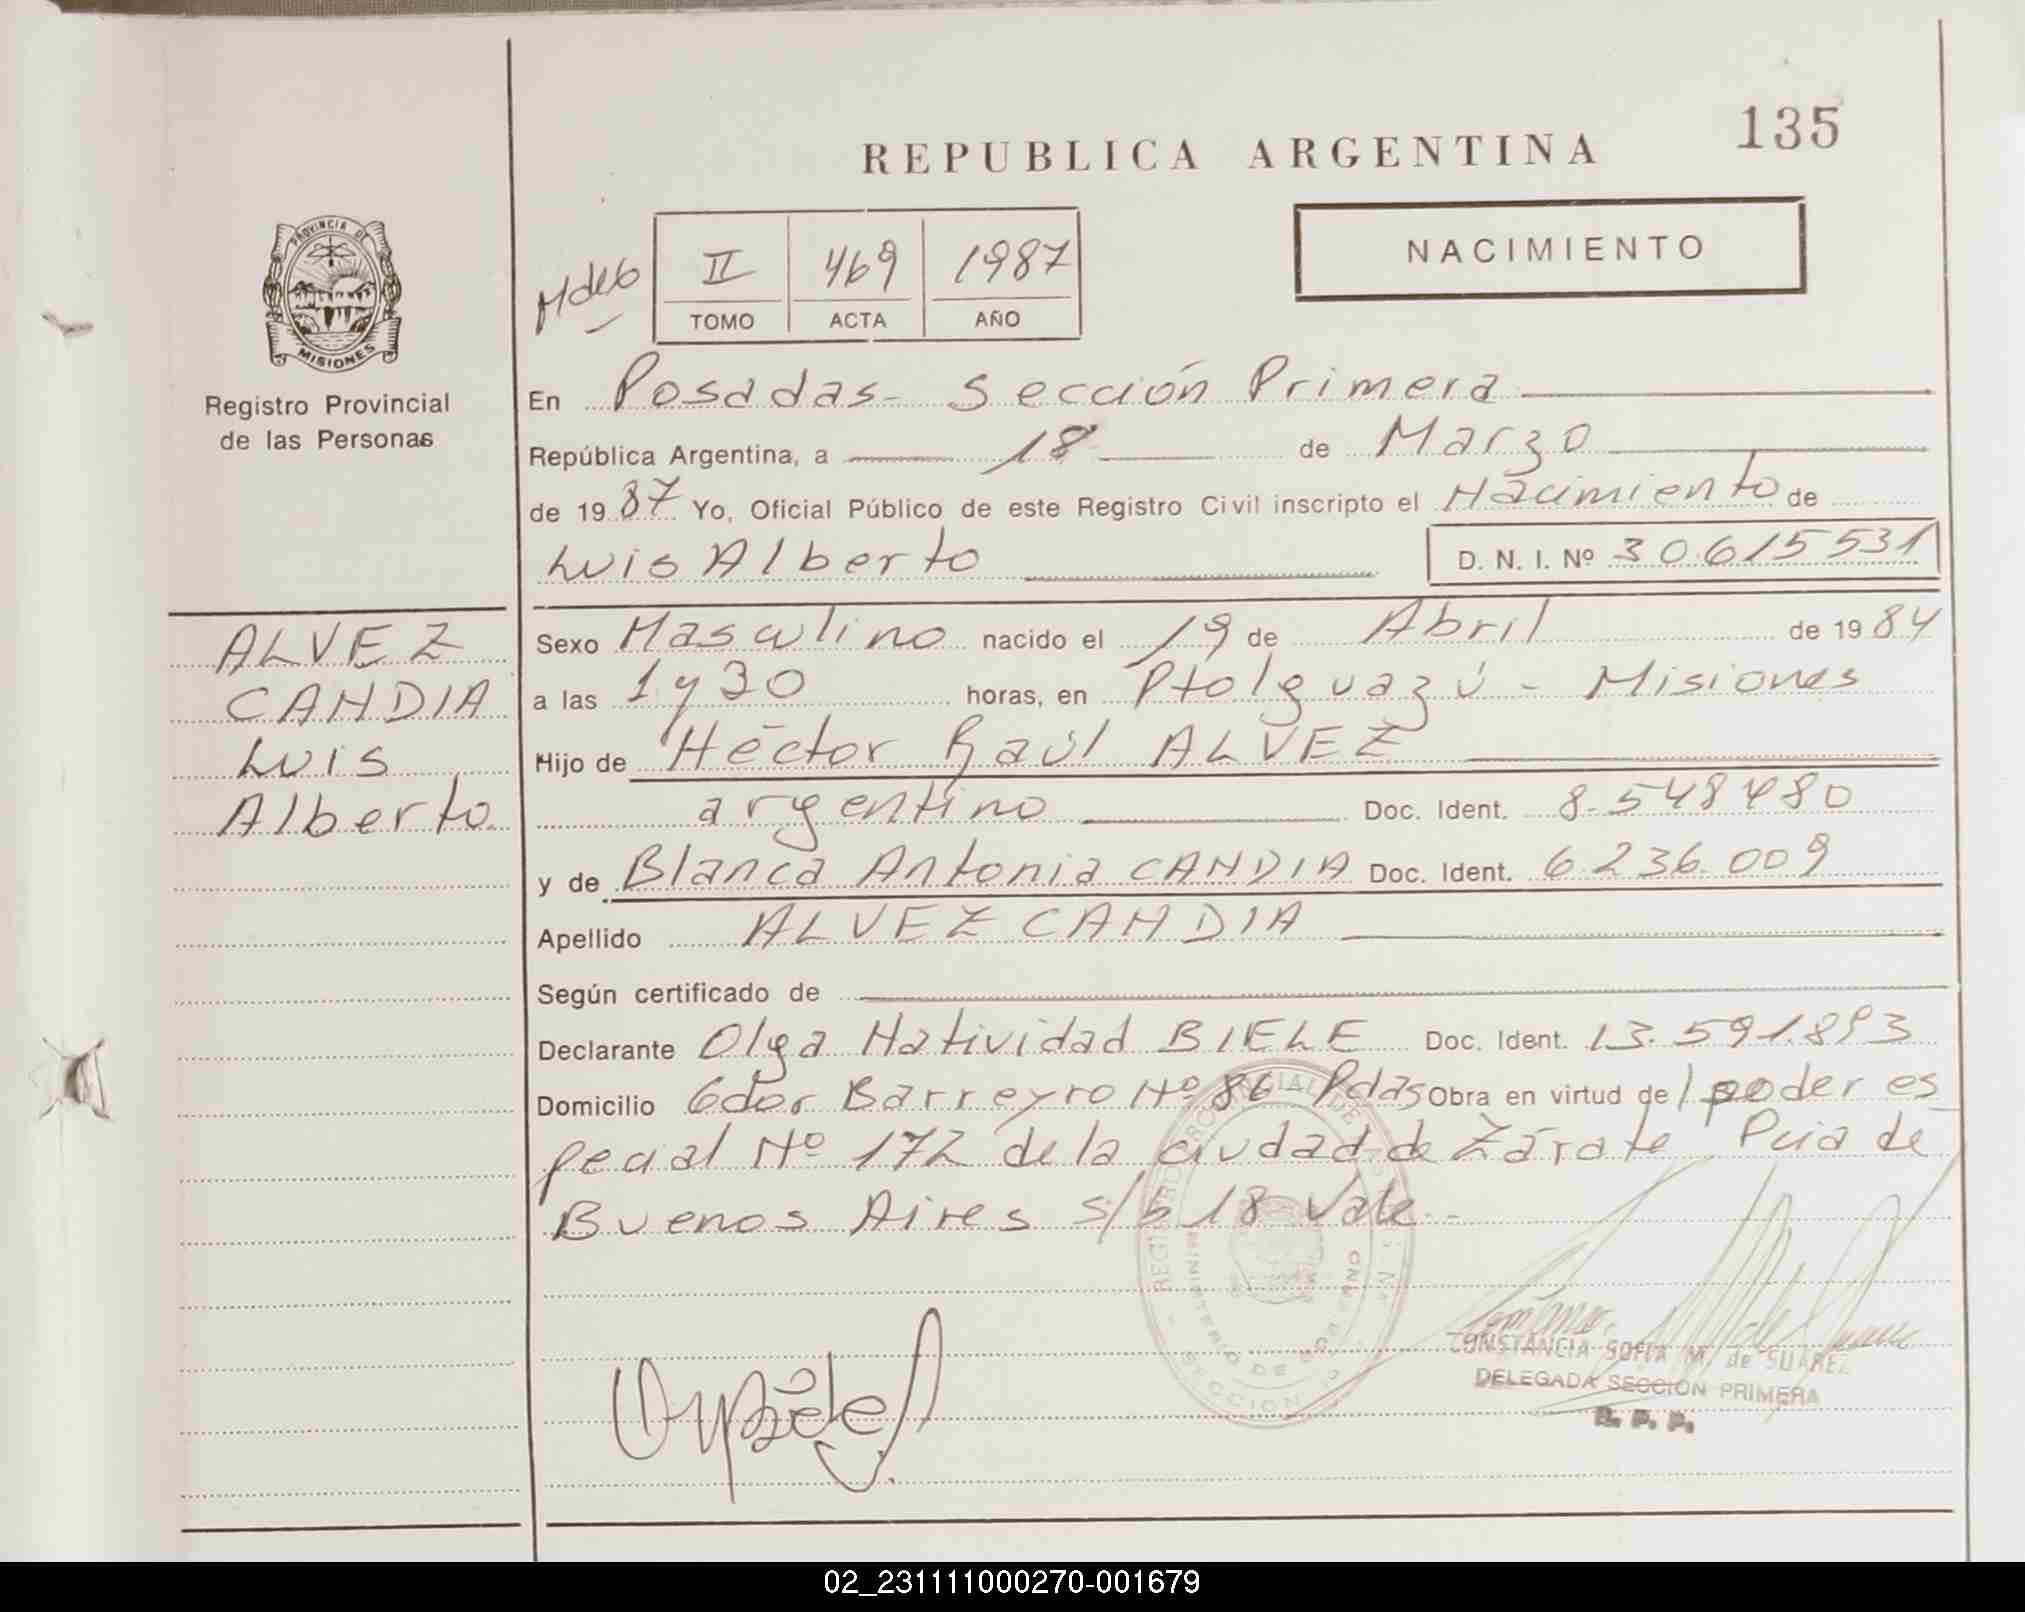 135
REPUBLICA ARGENTINA
NACIMIENTO
II 469 1987
TOMO ACTA AÑO
PROVINCIA DE
MISIONES
Registro Provincial
de las Personas
En Posadas - Sección Primera
República Argentina, a 18 de Marzo
de 1987 Yo, Oficial Público de este Registro Civil inscripto el Nacimiento de
Luis Alberto D. N. I. Nº 30.615531
ALVEZ
CANDIA
Luis
Alberto
Sexo Masculino nacido el 19 de Abril de 1984
a las 1 y 30 horas, en Pto Iguazú - Misiones
Hijo de Héctor Raúl ALVEZ
argentino Doc. Ident. 8.548480
y de Blanca Antonia CANDIA Doc. Ident. 6.236.009
Apellido ALVEZ CANDIA
Según certificado de
Declarante Olga Natividad BIELE Doc. Ident. 13.591.893
Domicilio Gdor Barreyro Nº 86 Pdas Obra en virtud de poder es
pecial Nº 172 de la ciudad de Zárate Pcia de
Buenos Aires s/b 18 Vale -
CONSTANCIA SOFIA M. de SUAREZ
DELEGADA SECCION PRIMERA
R. P. P.
02_231111000270-001679